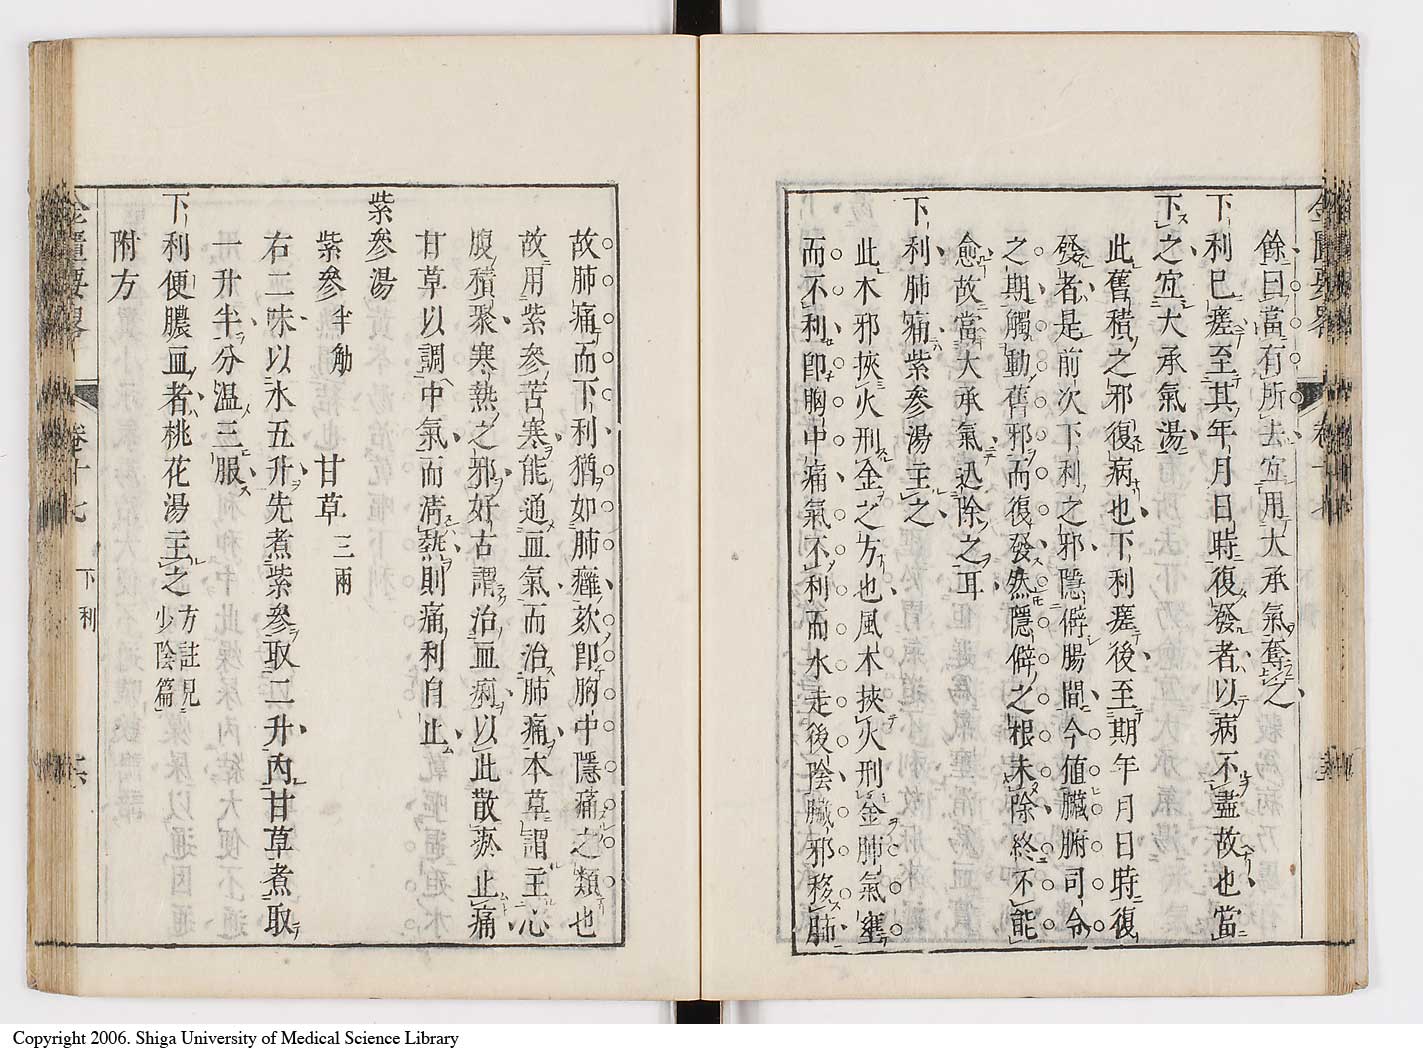 餘曰當有所去宜用大承氣奪之
下利已瘥至其年月日時復發者以病不盡故也當
下之宜大承氣湯
此舊積之邪復病也下利瘥後至期年月日時復
發者是前次下利之邪隱僻腸間今值臟腑司令
之期觸動舊邪而復發然隱僻之根未除終不能
愈故當大承氣迅除之耳
下利肺痛紫參湯主之
此木邪挾火刑金之方也風木挾火刑金肺氣壅
而不利卽胸中痛氣不利而水走後陰臟邪移肺
故肺痛而下利猶如肺癰欬卽胸中隱痛之類也
故用紫參苦寒能通血氣而治肺痛本草謂主心
腹積聚寒熱之邪好古謂治血痢以此散瘀止痛
甘草以調中氣而淸熱則痛利自止
紫參湯
紫參半觔　甘草三兩
右二味以水五升先煮紫參取二升內甘草煮取
一升半分温三服
下利便膿血者桃花湯主之方註見少陰篇
附方
金匱要畧　卷十七　下利　六
Copyright 2006. Shiga University of Medical Science Library